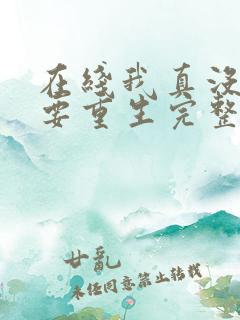 在线我真没
要重生完整
廿乱
未经同意禁止转载